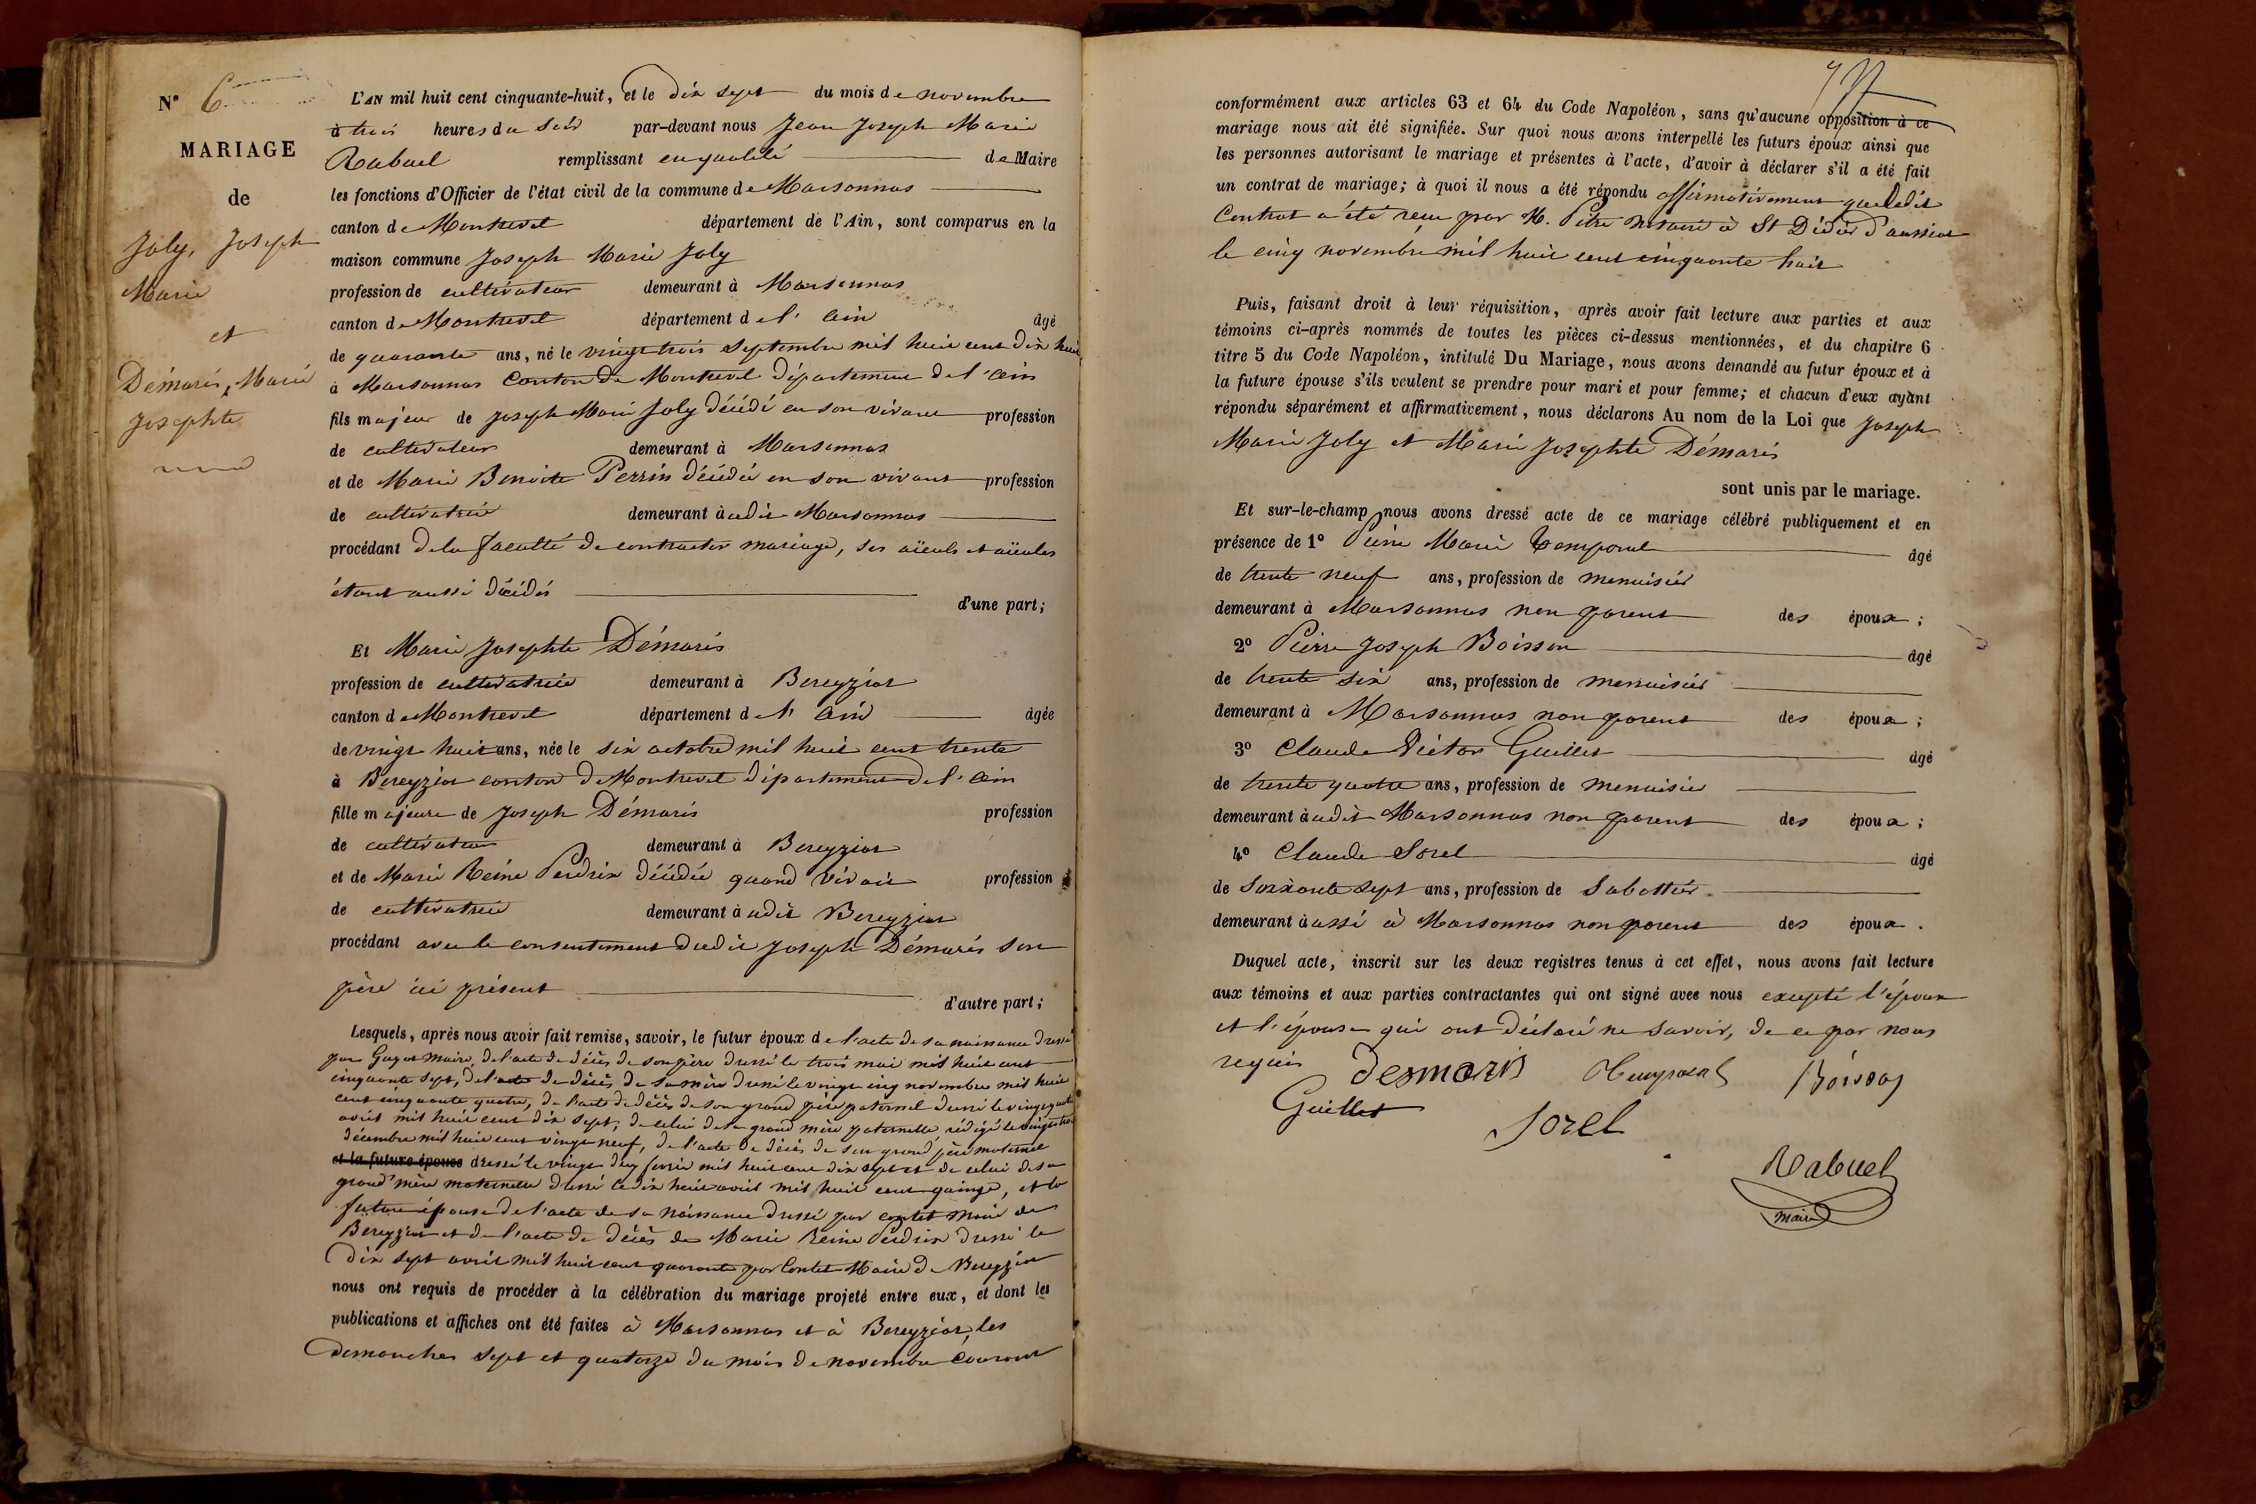 N° 6
MARIAGE
de
Joly, Joseph
Marie
et
Démaris, Marie
Josephte
L'AN mil huit cent cinquante-huit, et le dix sept du mois de novembre
à trois heures du soir par-devant nous Jean Joseph Marie
Rabuel remplissant en qualité de Maire
les fonctions d'Officier de l'état civil de la commune de Marsonnas
canton de Montrevel département de l'Ain, sont comparus en la
maison commune Joseph Marie Joly
profession de cultivateur demeurant à Marsonnas
canton de Montrevel département de l'ain âgé
de quarante ans, né le vingt trois septembre mil huit cent dix huit
à Marsonnas Canton de Montrevel Département de l'ain
fils majeur de Joseph Marie Joly décédé en son vivant profession
de cultivateur demeurant à Marsonnas
et de Marie Benoite Perrin décédée en son vivant profession
de cultivatrice demeurant à udit Marsonnas
procédant de la faculté de contracter mariage, ses aïeuls et aïeules
étant aussi décédés d'une part;
Et Marie Josephte Démaris
profession de cultivatrice demeurant à Bereyziat
canton de Montrevel département de l'ain âgée
de vingt huit ans, née le six octobre mil huit cent trente
à Bereyziat canton de Montrevel département de l'ain
fille majeure de Joseph Démaris profession
de cultivateur demeurant à Bereyziat
et de Marie Reine Perdrix décédée quand vivait profession
de cultivatrice demeurant à udit Bereyziat
procédant avec le consentement dudit Joseph Démaris son
père ici présent d'autre part;
Lesquels, après nous avoir fait remise, savoir, le futur époux de l'acte de sa naissance dressé
par Guyot maire, de l'acte de décès de son père dressé le trois mai mil huit cent
cinquante sept, de l'acte de décès de sa mère dressé le vingt cinq novembre mil huit
cent cinquante quatre, de l'acte de décès de son grand père paternel dressé le vingt quatre
avril mil huit cent dix sept, de celui de sa grand mère paternelle rédigé le vingt trois
décembre mil huit cent vingt neuf, de l'acte de décès de son grand père maternel
et la future épouse dressé le vingt deux février mil huit cent dix sept et de celui de sa
grand'mère maternelle dressé le dix huit avril mil huit cent quinze, et la
future épouse de l'acte de sa naissance dressé par contet maire de
Bereyziat et de l'acte de décès de Marie Reine Perdrix dressé le
dix sept avril mil huit cent quarante par Contet Maire de Bereyziat
nous ont requis de procéder à la célébration du mariage projeté entre eux, et dont les
publications et affiches ont été faites à Marsonnas et à Bereyziat, les
dimanches sept et quatorze du mois de novembre courant
conformément aux articles 63 et 64 du Code Napoléon, sans qu'aucune opposition à ce
mariage nous ait été signifiée. Sur quoi nous avons interpellé les futurs époux ainsi que
les personnes autorisant le mariage et présentes à l'acte, d'avoir à déclarer s'il a été fait
un contrat de mariage; à quoi il nous a été répondu affirmativement que ledit
Contrat a été reçu par M. Pitre notaire à St Didier d'aussiat
le cinq novembre mil huit cent cinquante huit
Puis, faisant droit à leur réquisition, après avoir fait lecture aux parties et aux
témoins ci-après nommés de toutes les pièces ci-dessus mentionnées, et du chapitre 6
titre 5 du Code Napoléon, intitulé Du Mariage, nous avons demandé au futur époux et à
la future épouse s'ils veulent se prendre pour mari et pour femme; et chacun d'eux ayant
répondu séparément et affirmativement, nous déclarons Au nom de la Loi que Joseph
Marie Joly et Marie Josephte Démaris
sont unis par le mariage.
Et sur-le-champ nous avons dressé acte de ce mariage célébré publiquement et en
présence de 1° Pierre Marie Temporal âgé
de trente neuf ans, profession de menuisier
demeurant à Marsonnas non parent des époux;
2° Pierre Joseph Boisson âgé
de trente six ans, profession de menuisier
demeurant à Marsonnas non parent des époux;
3° Claude Victor Guillet âgé
de trente quatre ans, profession de menuisier
demeurant à udit Marsonnas non parent des époux;
4° Claude Sorel âgé
de soixante sept ans, profession de Sabottier
demeurant à assi à Marsonnas non parent des époux.
Duquel acte, inscrit sur les deux registres tenus à cet effet, nous avons fait lecture
aux témoins et aux parties contractantes qui ont signé avec nous excepté l'époux
et l'épouse qui ont déclaré ne savoir, de ce par nous
requis Desmaris Temporal Boisson
Guillet Sorel
Rabuel
maire